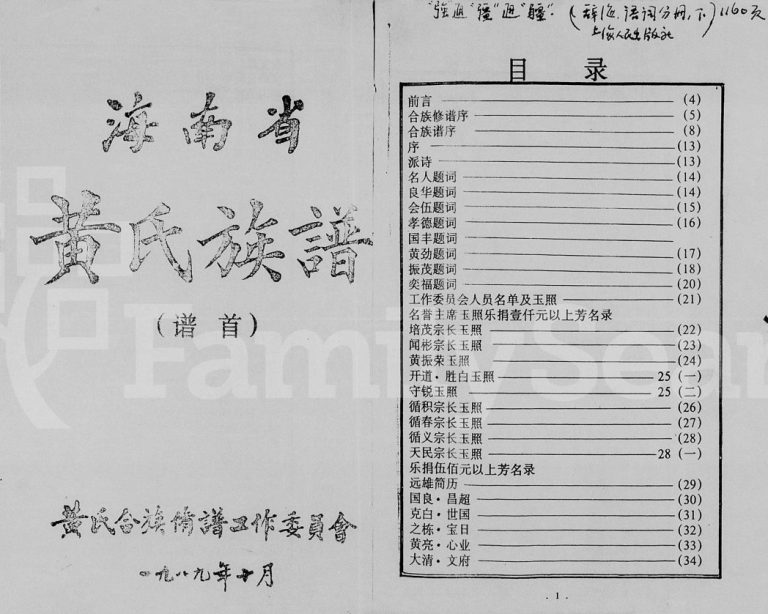 海南省
黄氏族譜
(谱首)
黄氏合族脩譜工作委員會
一九八九年十月
(辞海.语词分册,下)1160页
上海人民出版社
目 录
前言 (4)
合族修谱序 (5)
合族谱序 (8)
序 (13)
派诗 (13)
名人题词 (14)
良华题词 (14)
会伍题词 (15)
孝德题词 (16)
国丰题词
黄劲题词 (17)
振茂题词 (18)
奕福题词 (20)
工作委员会人员名单及玉照 (21)
名誉主席玉照乐捐壹仟元以上芳名录
培茂宗长玉照 (22)
闻彬宗长玉照 (23)
黄振荣玉照 (24)
开道·胜白玉照 25 (一)
守锐玉照 25 (二)
循积宗长玉照 (26)
循春宗长玉照 (27)
循义宗长玉照 (28)
天民宗长玉照 28 (一)
乐捐伍佰元以上芳名录
远雄简历 (29)
国良·昌超 (30)
克白·世国 (31)
之栋·宝日 (32)
黄亮·心业 (33)
大清·文府 (34)
· 1 ·
FamilySear